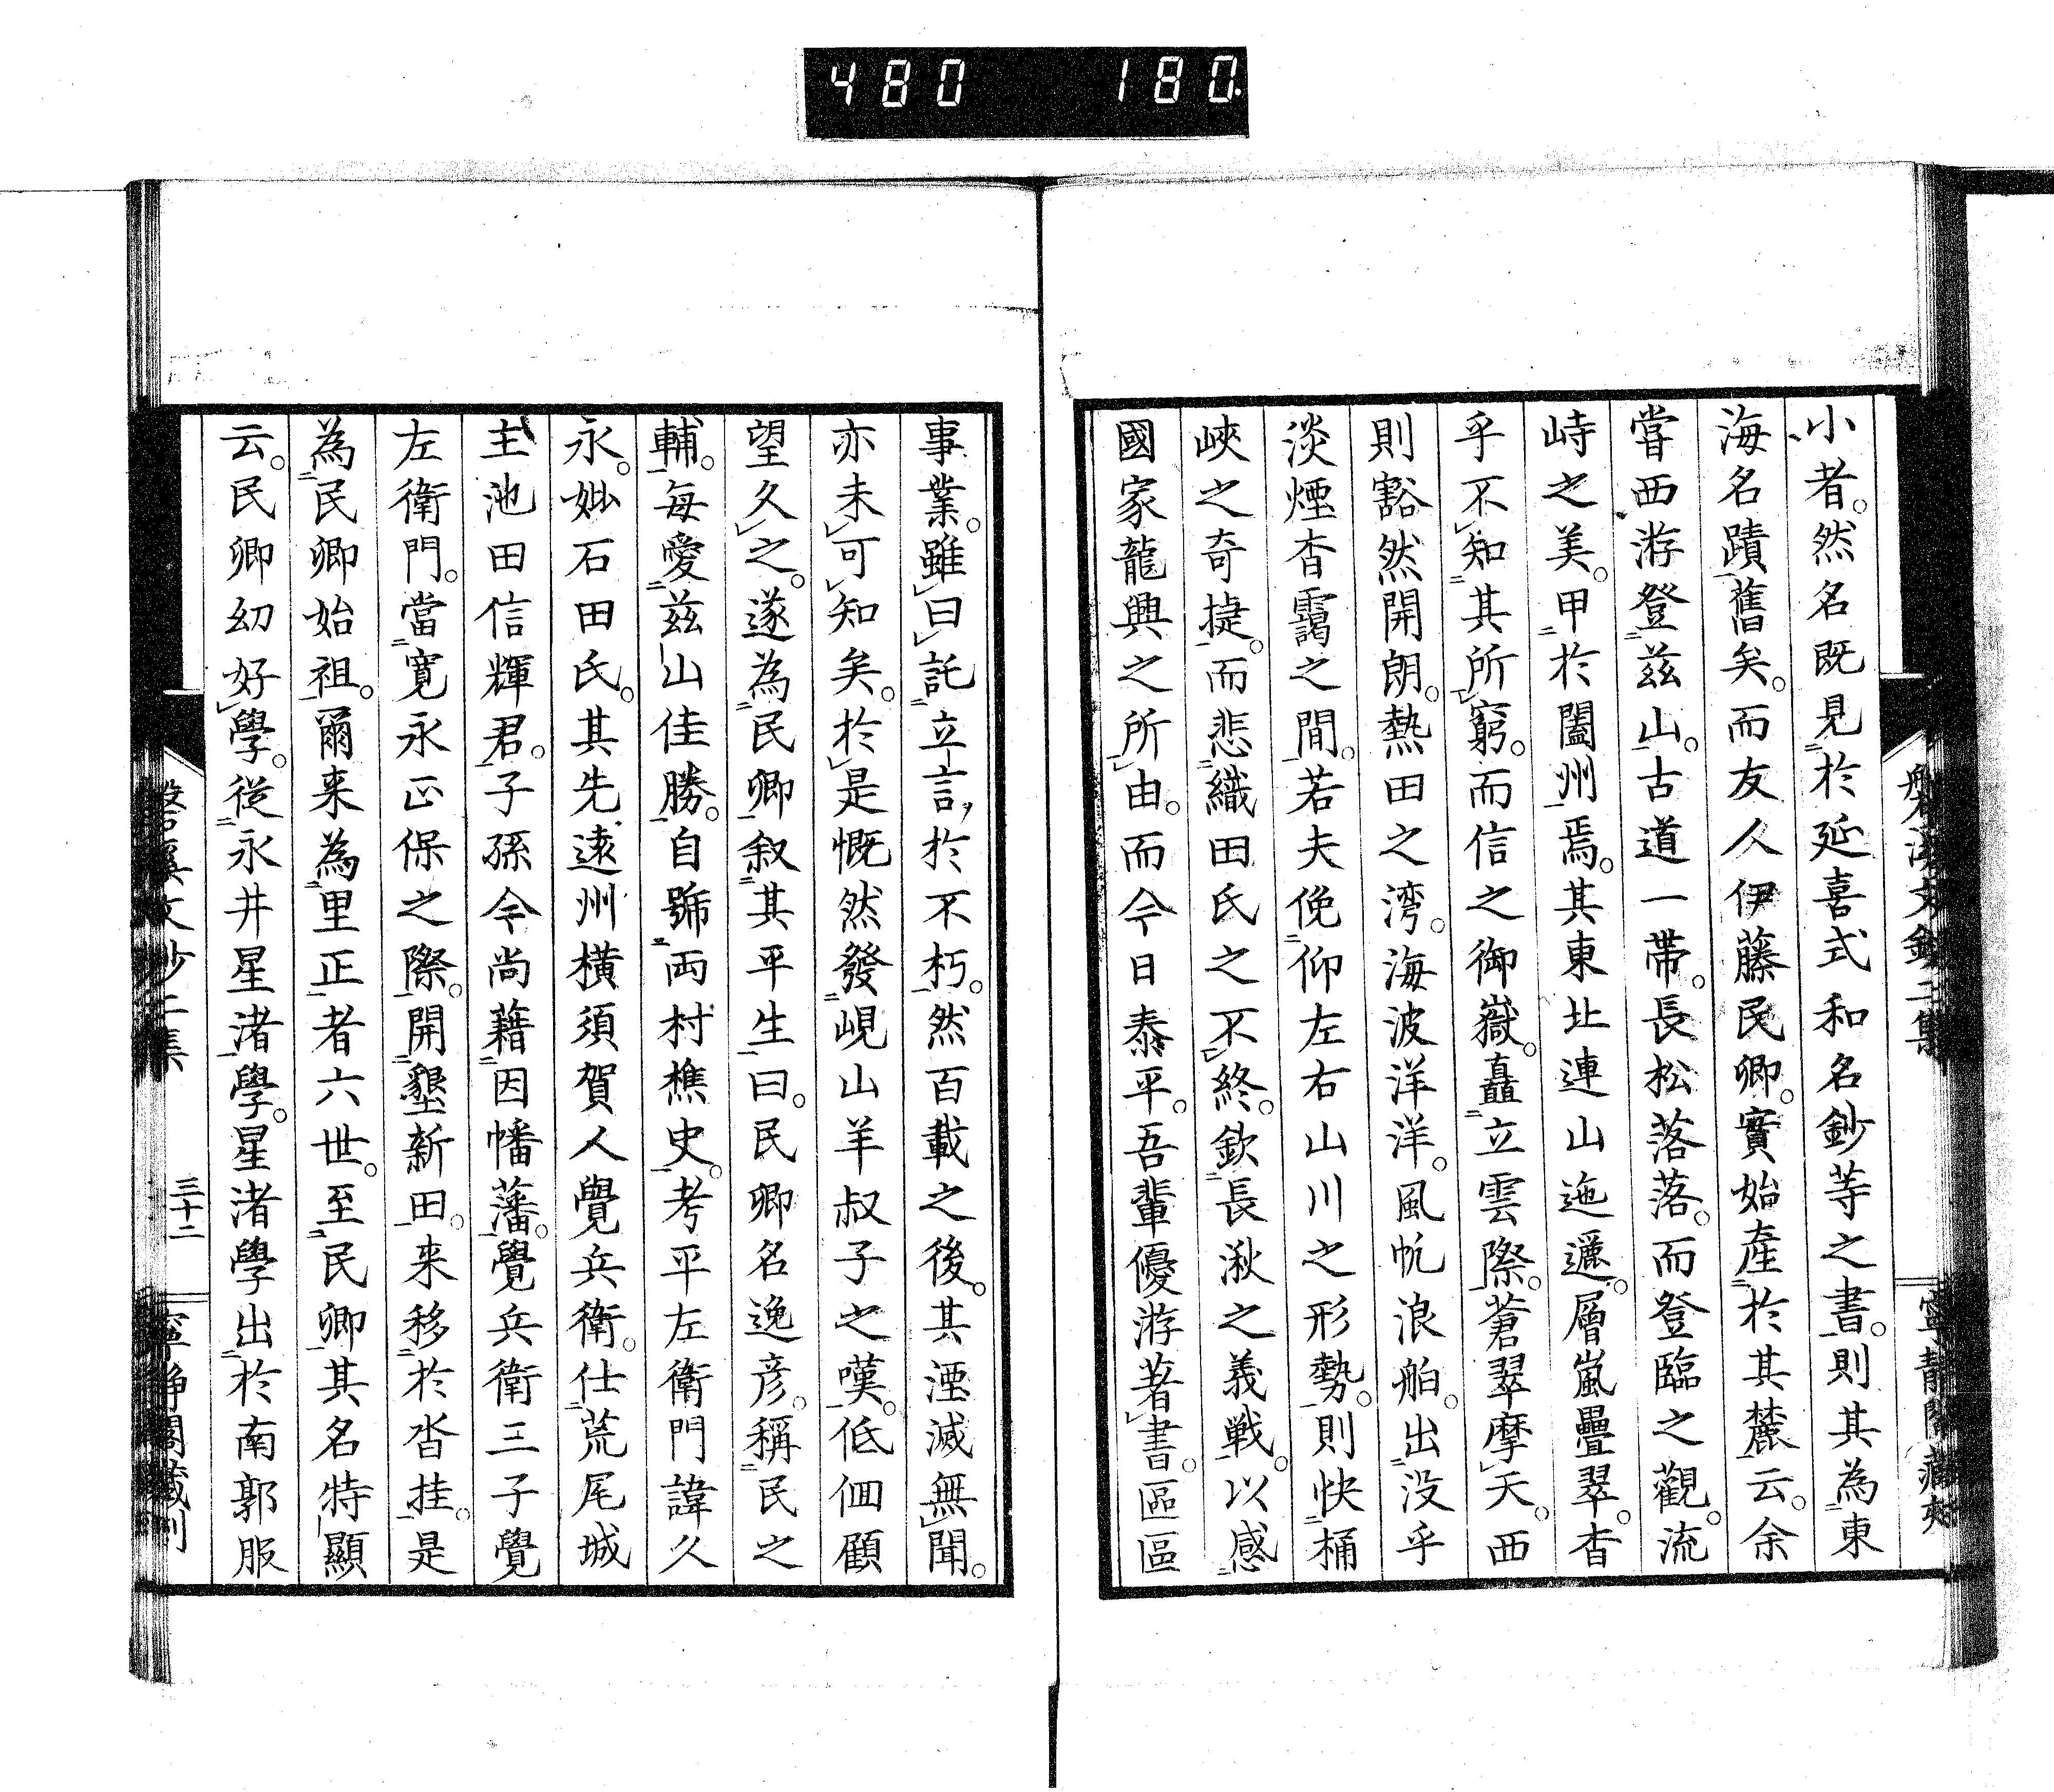 480 180
小者。然名既見於延喜式和名鈔等之書。則其為東
海名蹟舊矣。而友人伊藤民卿。實始產於其麓云。余
嘗西游登茲山。古道一帶。長松落落。而登臨之觀。流
峙之美。甲於闔州焉。其東北連山迤邐。層嵐疊翠。杳
乎不知其所窮。而信之御嶽。矗立雲際。蒼翠摩天。西
則豁然開朗。熱田之湾。海波洋洋。風帆浪舶。出没乎
淡煙杳靄之間。若夫俛仰左右山川之形勢。則快桶
峽之奇捷。而悲織田氏之不終。欽長湫之義戰。以感
國家龍興之所由。而今日泰平。吾輩優游著書。區區
事業。雖曰託立言於不朽。然百載之後。其湮滅無聞。
亦未可知矣。於是慨然發峴山羊叔子之嘆。低佪顧
望久之。遂為民卿叙其平生曰。民卿名逸彥。稱民之
輔。每愛茲山佳勝。自號両村樵史。考平左衛門諱久
永。妣石田氏。其先遠州横須賀人覺兵衛。仕荒尾城
主池田信輝君。子孫今尚藉因幡藩。覺兵衛三子覺
左衛門。當寛永正保之際。開墾新田。来移於沓挂。是
為民卿始祖。爾来為里正者六世。至民卿其名特顯
云。民卿幼好學。從永井星渚學。星渚學出於南郭服
三十二